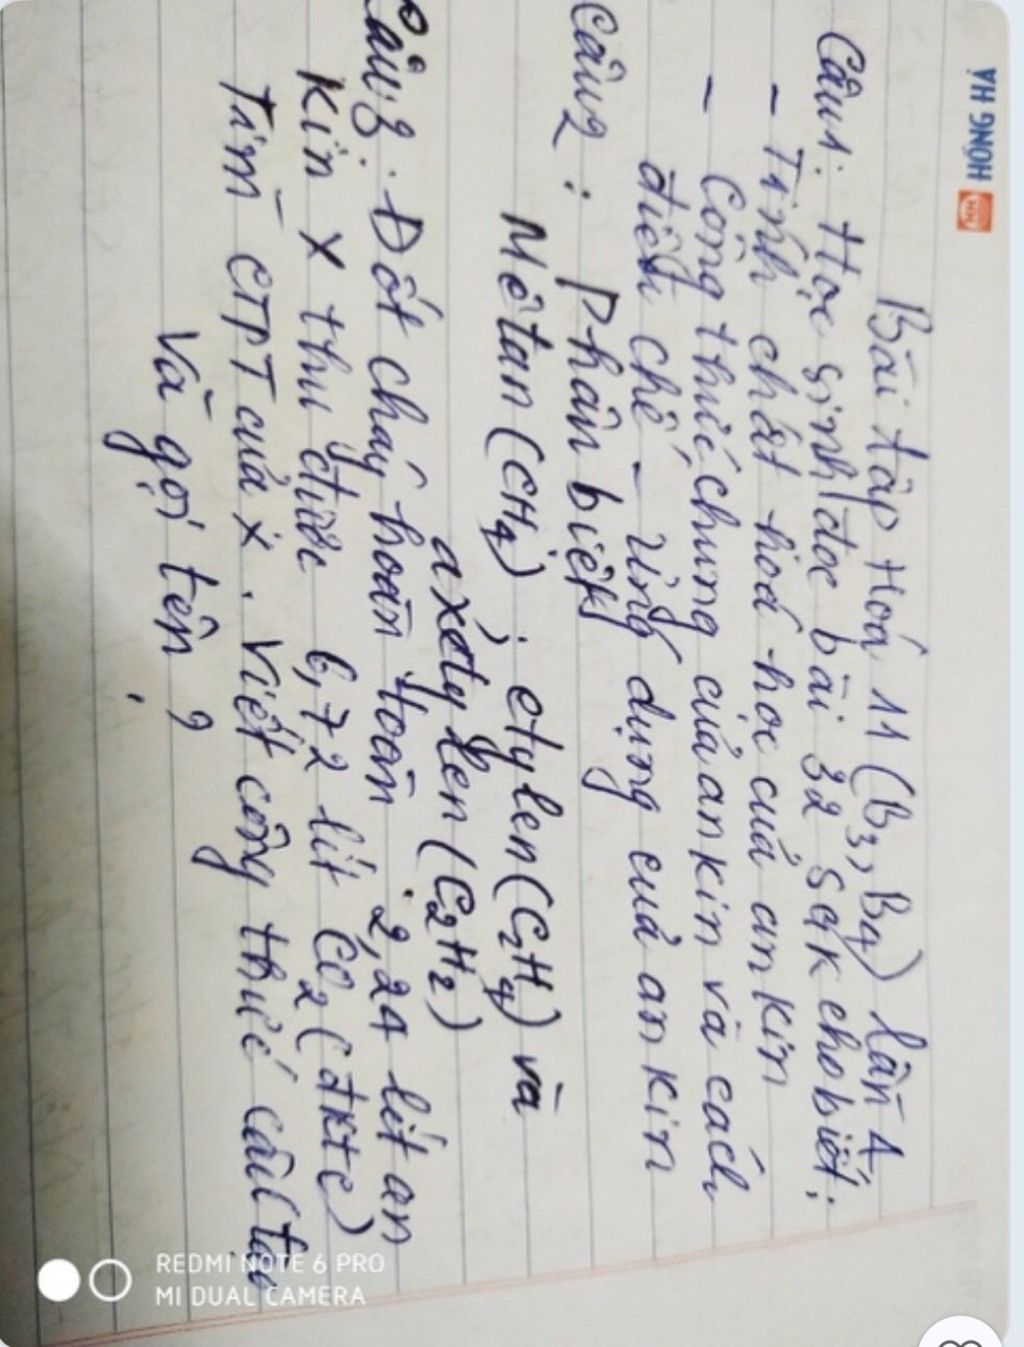 HỒNG HÀ
Bài tập Hoá 11 (B3, B4) lần 4
Câu 1: Học sinh đọc bài 32 SGK cho biết:
- Tính chất hoá học của an kin
- Công thức chung của ankin và cách
điều chế - ứng dụng của an kin
Câu 2: Phân biệt
Mêtan (CH4); etylen (C2H4) và
axêtylen (C2H2)
Câu 3: Đốt cháy hoàn toàn 2,24 lít an
kin X thu được 6,72 lít CO2 (đktc)
Tìm CTPT của X. Viết công thức cấu tạo
Và gọi tên ?
REDMI NOTE 6 PRO
MI DUAL CAMERA